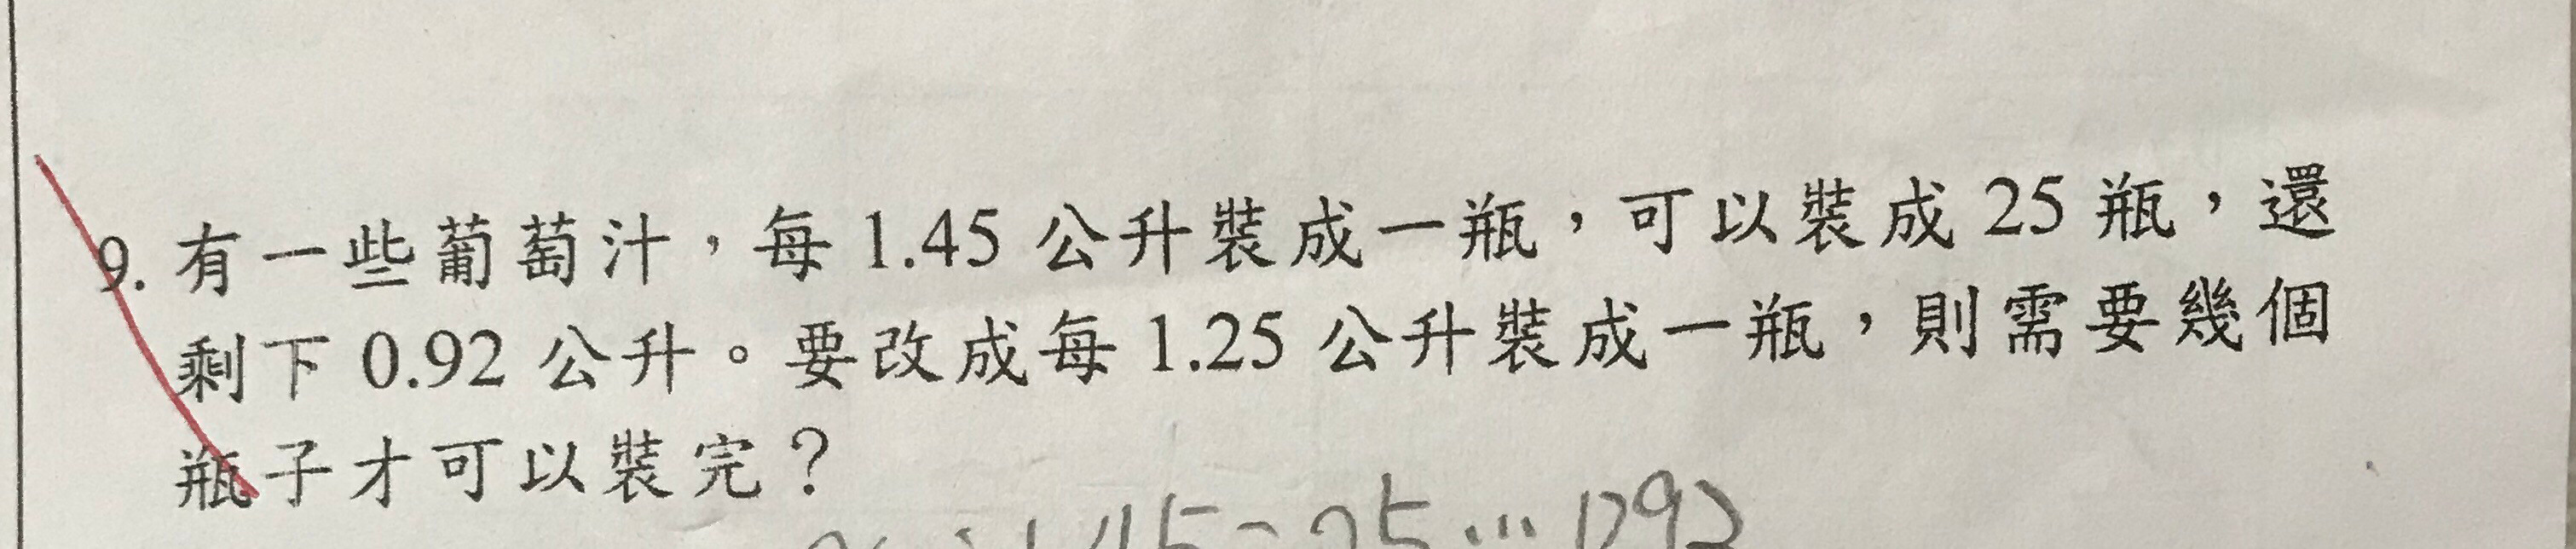 9. 有一些葡萄汁，每 1.45 公升裝成一瓶，可以裝成 25 瓶，還
剩下 0.92 公升。要改成每 1.25 公升裝成一瓶，則需要幾個
瓶子才可以裝完？